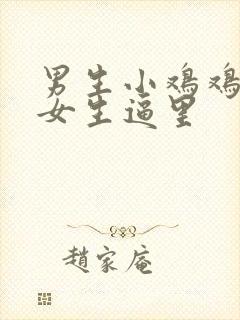 男生小鸡鸡
女生逼里
趙家庵